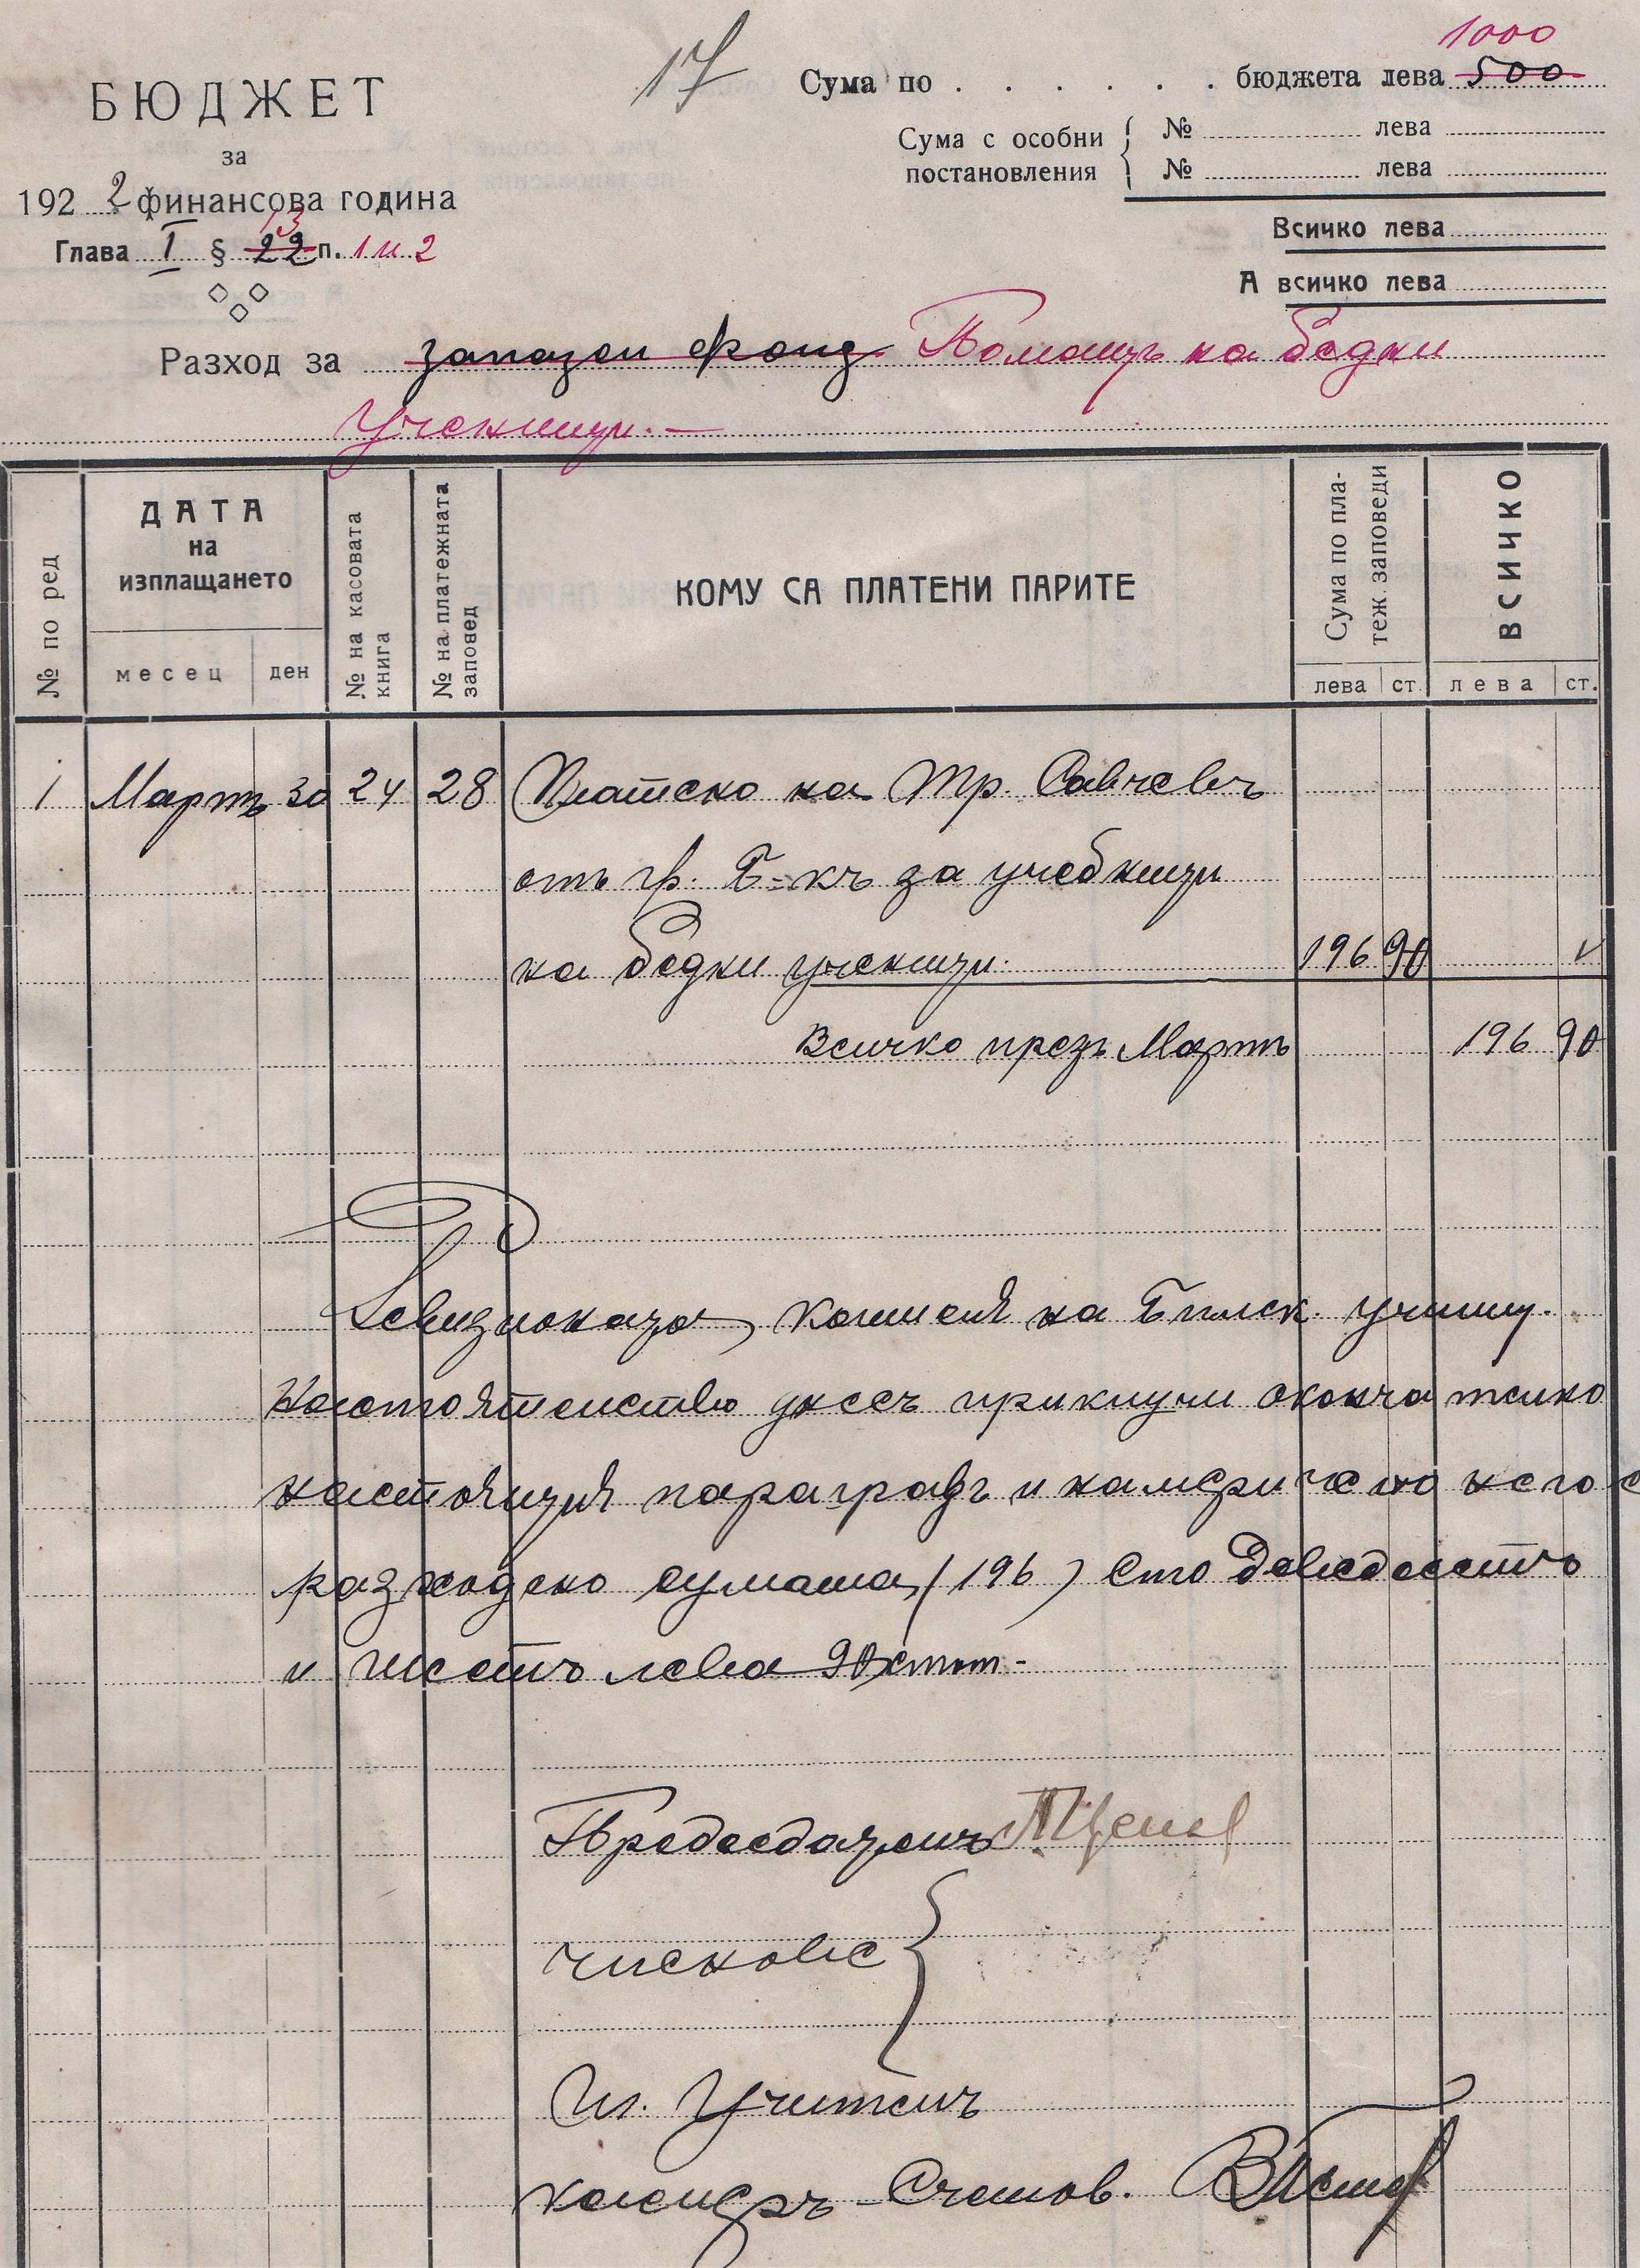 17
БЮДЖЕТ
за
1922 финансова година
Глава I § 22 13 п. 1 и 2
Сума по . . . . . . бюджета лева 500 1000
Сума с особни постановления { № лева
№ лева
Всичко лева
А всичко лева
Разход за запазен фонд. Помощь на бедни
ученици.—
№ по ред
ДАТА на изплащането
месец ден
№ на касовата книга
№ на платежната заповед
КОМУ СА ПЛАТЕНИ ПАРИТЕ
Сума по платеж. заповеди
лева ст.
ВСИЧКО
лева ст.
1 Мартъ 30 24 28 Платено на Тр. Савчевъ
отъ гр. Б-къ за учебници
на бедни ученици. 196 90
Всичко презъ Мартъ 196 90
Ревизионата комисия на училищ.
Настоятелство днесъ приключи окончателно
настоящия параграфъ и намери че по него е
разходено сумата (196) Сто деведесеть
и шесть лева 90 стот-
Председателъ
членове {
Гл. Учителъ
касиеръ-Счетов.